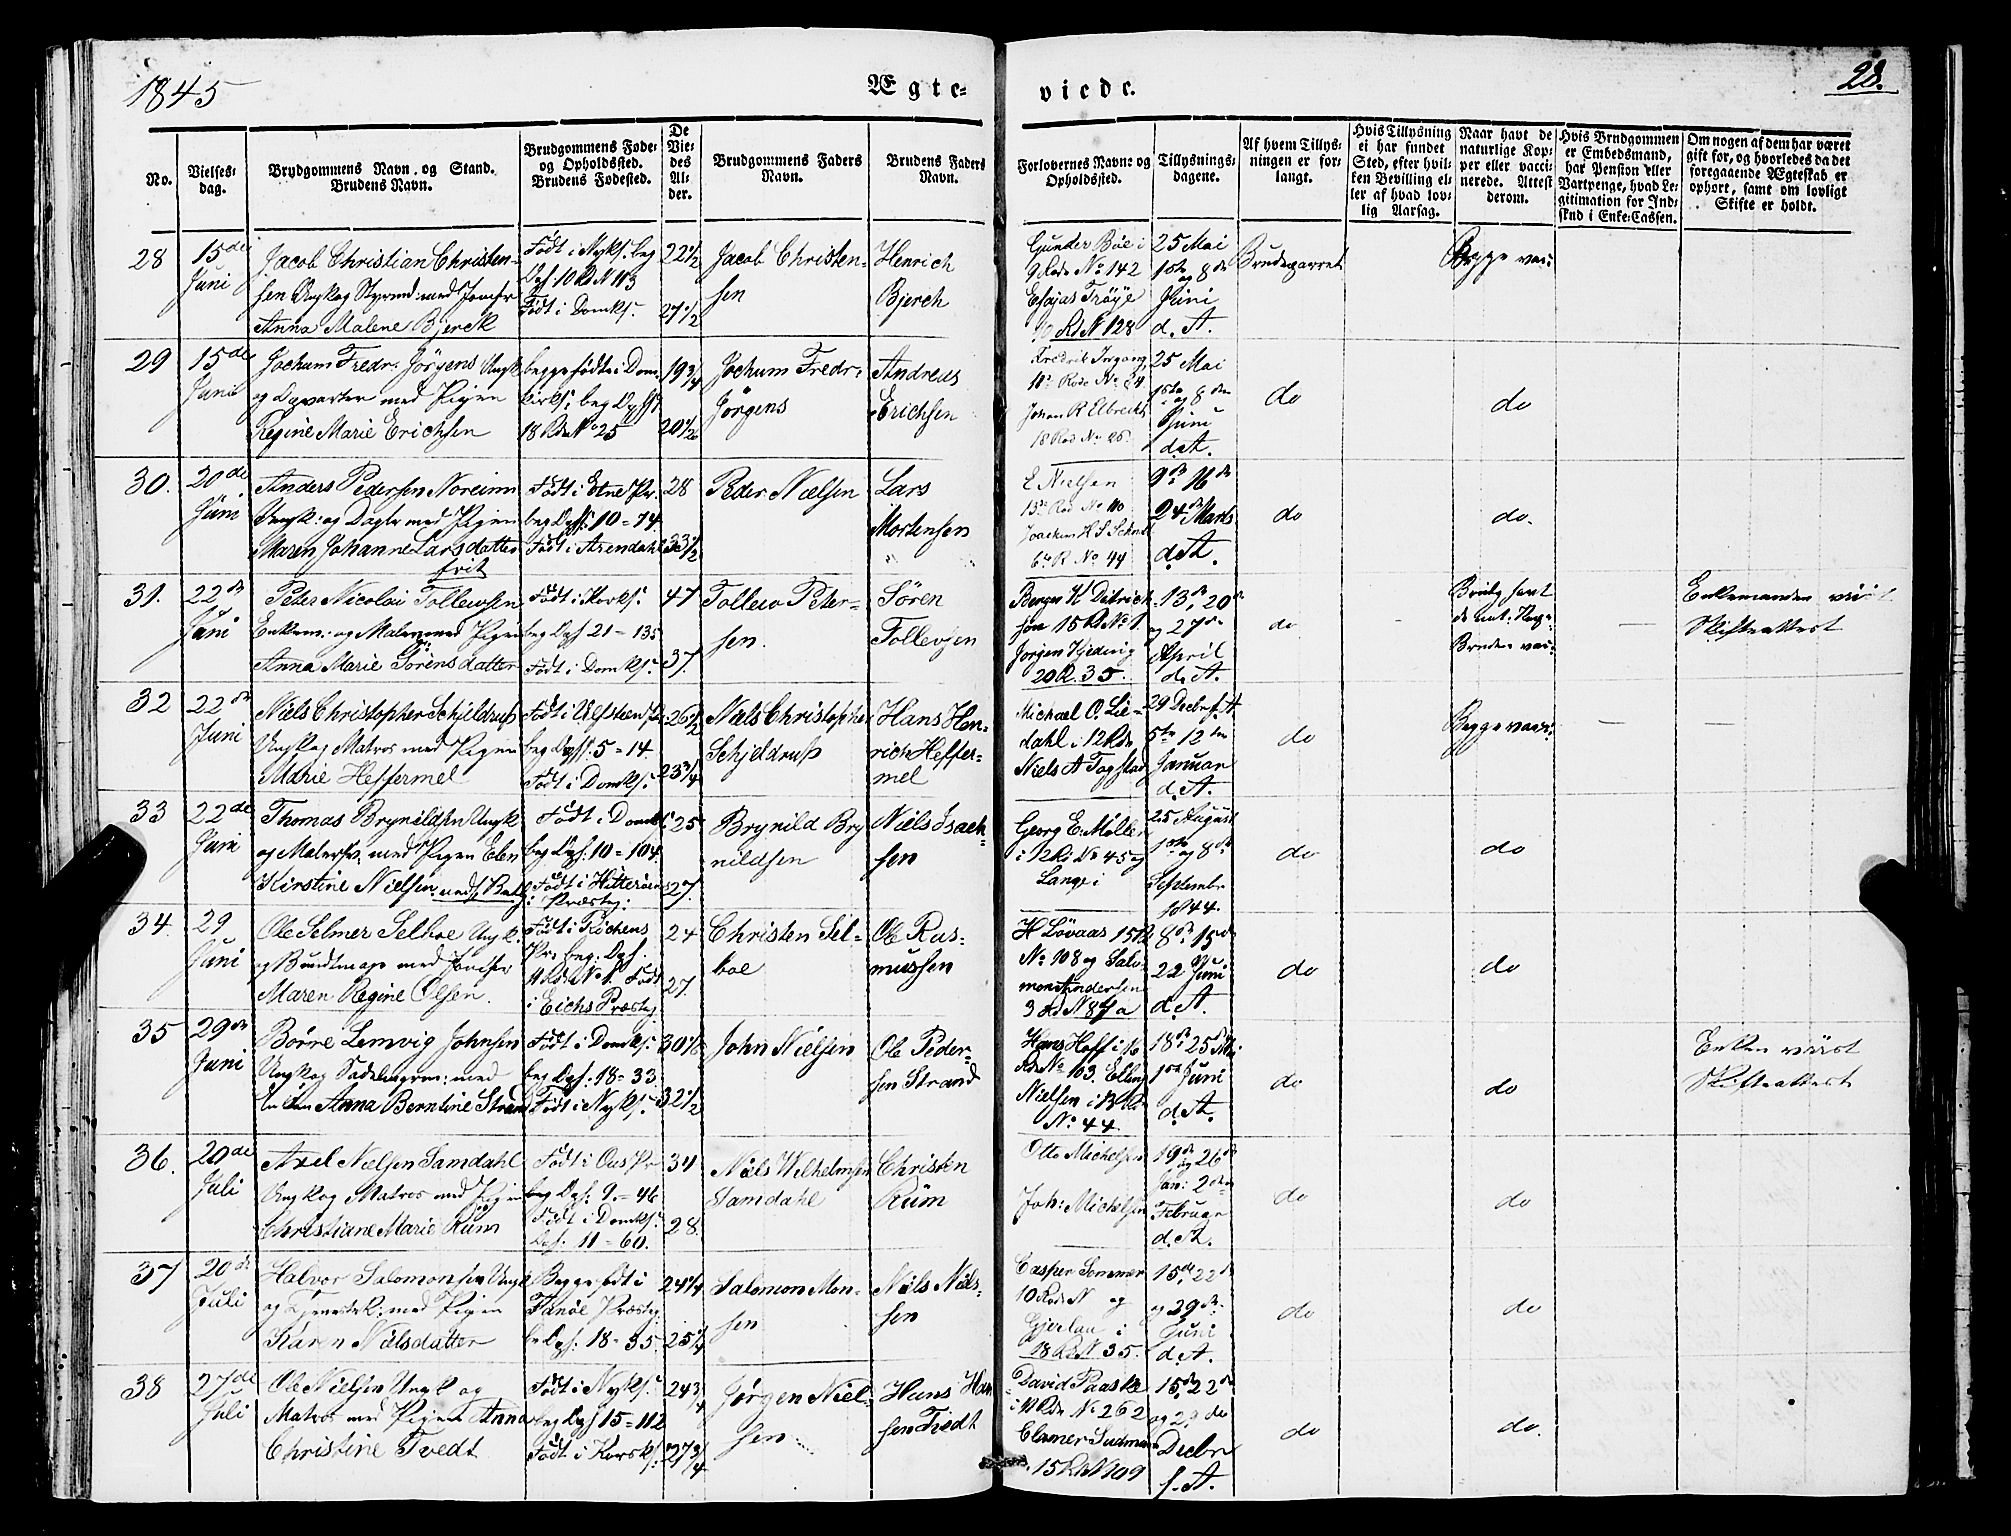 1845
Ægte-
viede.
28.
No.
Vielses-
dag.
Brydgommens Navn og Stand.
Brudens Navn.
Brudgommens Føde-
og Opholdssted.
Brudens Fødested.
De
Vie-
des
Al-
der.
Brudgommens Faders
Navn.
Brudens Faders
Navn.
Forlovernes Navne og
Opholdssted.
Tillysnings-
dagene.
Af hvem Tillys-
ningen er for-
langt.
Hvis Tillysning
ei har fundet
Sted, efter hvil-
ken Bevilling el-
ler af hvad lov-
lig Aarsag.
Naar havt de
naturlige Kop-
per eller vacci-
nerede. Attest
derom.
Hvis Brudgommen
er Embedsmand,
har Pension eller
Vartpenge, hvad Le-
gitimation for Ind-
skud i Enke-Cassen.
Om nogen af dem har været
gift før, og hvorledes da det
foregaaende Ægteskab er
ophørt, samt om lovligt
Skifte er holdt.
28
15de
Juni
Jacob Christian Christen-
sen Ungk og Styrmd: med Jomfr
Anna Malene Bjerck
Født i Nyks. beg
Dgs 10 Rd N 113
Født i Domks.
22 1/2
27 1/2
Jacob Christen-
sen
Henrich
Bjerch
Gunder Böe i
9 Rode No 142
Esajas Trøye
Rd N 128
25 Mai
1ste og 8de
Juni
d. A.
Brudeparret
Begge vac:
29
15de
Juni
Jochum Fredr. Jörgens Ungk
og Opvarter med Pigen
Regine Marie Erichsen
begge födte i Dom-
kirks. beg Dgs
18 Rd No 25
19 3/4
20 1/2
Jochum Fredr.
Jörgens
Andreas
Erichsen
Fredrik Ingang
18 Rode No 24
Johan R Elbrecht
18 Rod No 26
25 Mai
1ste og 8de
Juni
d. A.
do
do
30.
20de
Juni
Anders Pedersen Noreim
Ungk: og Dagln med Pigen
Maren Johanne Larsdatter
frit
Født i Etne Pr.
beg Dgs: 10 = 74.
Født i Arendahl
28
33 1/2
Peder Nielsen
Lars
Mortensen
E Nielsen
15de Rod No 110
Joachim H S Schmidt
6te R No 44
9de 16de
24de Marts
d. A.
do
do.
31.
22de
Juni
Peter Nicolai Tollewsen
Enkem: og Maler med Pigen
Anna Marie Sörensdatter
Født i Korks.
beg Dgs 21 = 135
Født i Domks.
47
37.
Tollew Peter-
sen.
Sören
Tollevsen
Berger H Ditrich-
sen 15 Rd No 1.
Jørgen Hjelwig
20 R. 35.
13de 20de
og 27de
April
d. A.
do
Brudg havt
de nat: Kop:
Bruden vac:
Enkemanden viist
Skifteattest
32
22de
Juni
Niels Christopher Schjeldrup
Ungk og Matros med Pigen
Marie Heffermel
Født i Ulfsteen Pr
beg Dgs: 5 = 14.
Født i Domks.
26 1/2
23 3/4
Niels Christopher
Schjeldrup
Hans Hen-
rich Heffer-
mel
Michael O. Lie-
dahl i 12 Rde
Niels A Fogstad
29 Decbr f. A
5te 12te
Januar
d. A.
do
Begge vac:
33
22de
Juni
Thomas Brynildsen Ungk
og Malersv. med Pigen Elen
Kirstine Nielsen
Født i Domks
beg Dgs: 10 = 104.
Født i Hitterøen
i Præsteg:
25
27.
Brynild Bry
nildsen
Niels Isach-
sen
Georg E. Møller
i 12 Rd No 45 og
Lange i
25 August
1ste og 8de
Septembr
1844.
do
do
34.
29
Juni
Ole Selmer Selboe Ungk.
og Bundtmager med Jomfr
Maren Regine Olsen.
Født i Kichens
Pr: beg: Dgs.
Rd: No 1. Født
i Eichs Præsteg.
24
27.
Christen Sel-
boe
Ole Ras-
mussen
H Lövaas 15 Rd
No 108 og Salo-
mon Andersen
3 Rd N 87 a
8de 15de
22 Juni
d. A.
do
do
35
29de
Juni
Börre Lemvig Johnsen
Ungk og Sadelmgrm: med
Enken Anna Berntine Strand
Født i Domks.
beg Dgs: 18 = 33.
Født i Nyks.
30 1/2
32 1/2
John Nielsen
Ole Peder-
sen Strand
Hans Hoff i 16
Rd No 163. Elling
Nielsen i 13 Rd
No 44.
18de 25 Mai
1ste Juni
d. A.
do
do
Enken viist
Skifteattest
36.
20de
Juli
Axel Nielsen Samdahl
Ungk og Matros med Pigen
Christiane Marie Rüm
Født i Ous Pr
beg Dgs: 9. = 46
Født i Domks.
Dgs: 11 = 60.
34
28.
Niels Wilhelmsen
Samdahl
Christen
Rüm
Otto Michelsen
Joh: Michelsen
19de og 26de
Jan: 2den
Februar
d. A.
do
do
37
20de
Juli
Halvor Salomonsen Ungk
og Tjenestek: med Pigen
Karen Nielsdatter
Begge født i
Fanøe Præsteg
be Dgs: 18 = 35.
24 1/4
25 1/4
Salomon Mon-
sen
Niels Niels-
sen
Casper Sommer
10 Rode N og
Gjerlau i
18 Rd N. 35.
15de 22de
og 29de
Juni
d. A.
do
do
38
27de
Juli
Ole Nielsen Ungk og
Matros med Pigen Anna
Christine Tvedt
Født i Nyks.
beg Dgs 15 = 112
Født i Korsks:
24 3/4
27 3/4
Jörgen Niel-
sen
Hans Han-
sen Tvedt
David Paaske
i 11 Rde No 262
Elamer Sudmann
15 Rd N 109
15de 22de
og 29de
Decbr
f. A.
do
do.